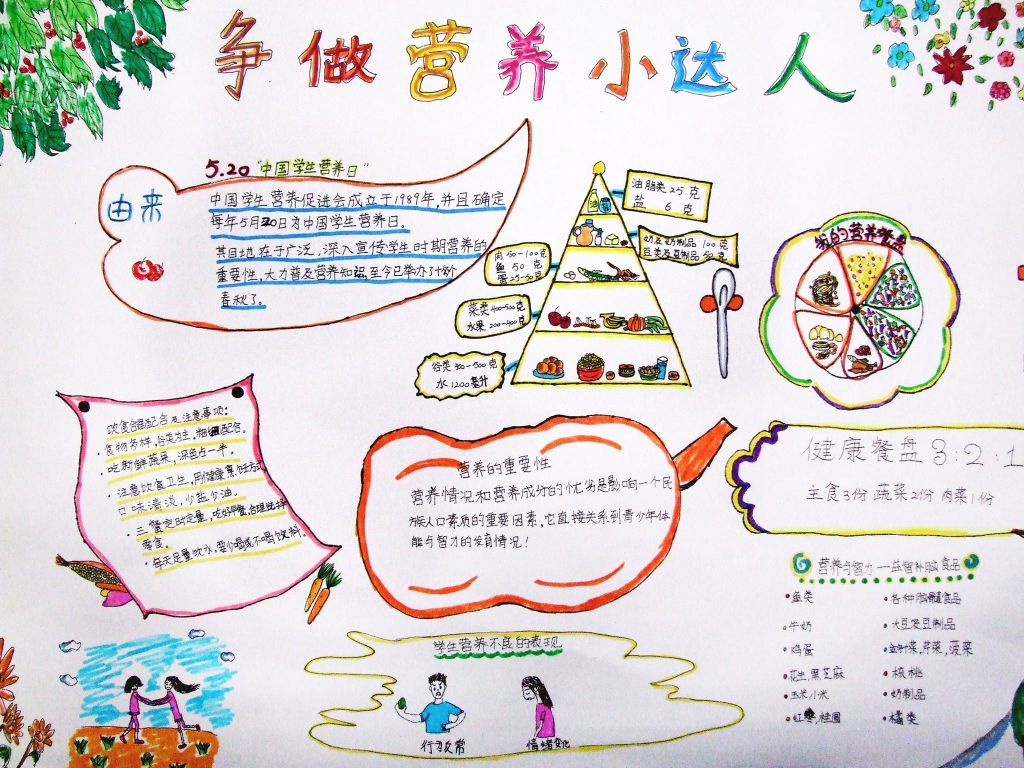 争做营养小达人
5.20 "中国学生营养日"
由来
中国学生营养促进会成立于1989年,并且确定
每年5月20日为中国学生营养日。
其目地在于广泛,深入宣传学生时期营养的
重要性,大力普及营养知识,至今已举办了十余个
春秋了。
油脂类 25 克
盐 6 克
奶及奶制品 100克
豆类及豆制品 50克
肉 50-100克
鱼 50 克
蛋 25-50克
菜类 400-500克
水果 200-400克
谷类 300-500克
水 1200毫升
我的营养餐盘
饮食合理配合及注意事项:
·食物多样,谷类为主,粗细配合。
·吃新鲜蔬果,深色占一半。
·注意饮食卫生,用健康烹饪方式
口味清淡,少盐少油。
·三餐定时定量,吃好早餐,合理选择
零食。
·每天足量饮水,要少喝或不喝饮料。
营养的重要性
营养情况和营养成分的优劣是影响一个民
族人口素质的重要因素,它直接关系到青少年体
能与智才的发育情况!
健康餐盘 3:2:1
主食3份 蔬菜2份 肉菜1份
营养与智力 — 益智补脑食品
·鱼类
·牛奶
·鸡蛋
·花生,黑芝麻
·玉米小米
·红枣,桂圆
·各种脑髓食品
·大豆及豆制品
·金针菜,芹菜,菠菜
·核桃
·奶制品
·橘类
学生营养不良的表现
行为反常
情绪变化